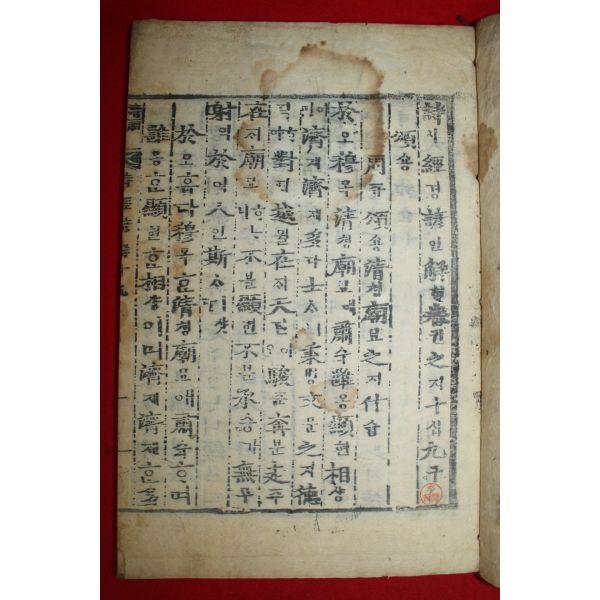 詩시經경諺언解ᄒᆡ卷권之지十십九구
頌숑
周쥬頌숑淸쳥廟묘之지什십
於오穆목淸쳥廟묘애肅슉雝옹顯현相샹
이며濟졔濟졔多다士ᄉᆞㅣ秉병文문之지德덕
對ᄃᆡ越월在ᄌᆡ天텬이오駿쥰奔분走주
在ᄌᆡ廟묘ᄒᆞᄂᆞ니不블顯현不블承승가無무
射역於어人인斯ᄉᆞㅣ샷다
於오홉다穆목ᄒᆞᆫ淸쳥廟묘애肅슉ᄒᆞ며
雝옹ᄒᆞᆫ顯현ᄒᆞᆫ相샹이며濟졔濟졔ᄒᆞᆫ多
詩經諺解十九 一